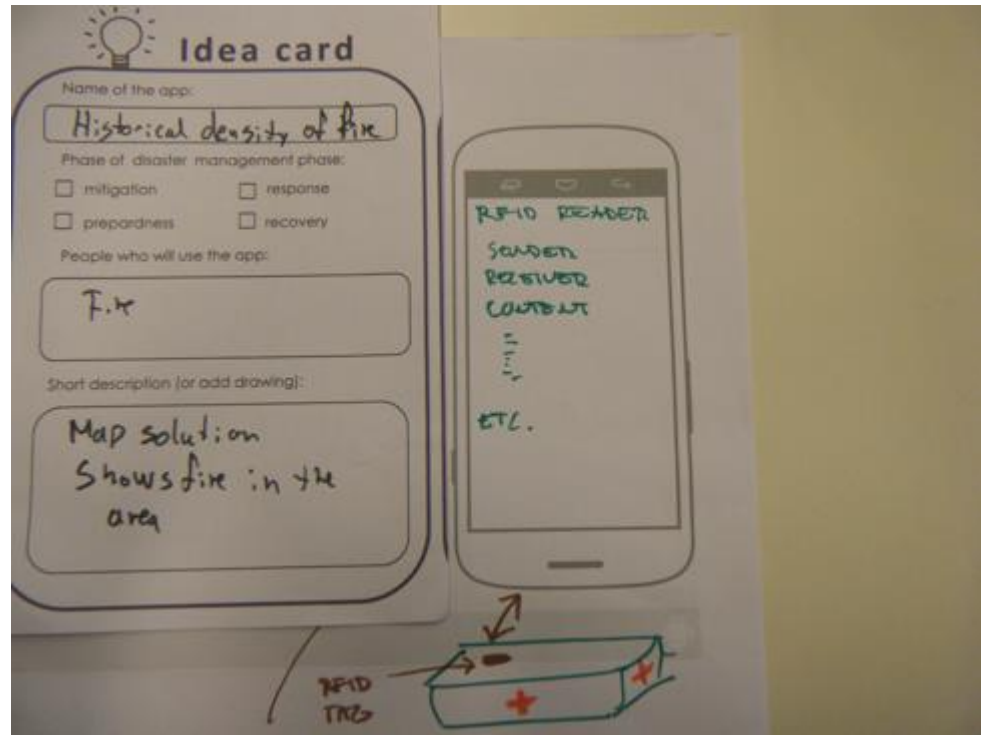 Idea card
Name of the app:
Historical density of fire
Phase of disaster management phase:
mitigation
response
prepardness
recovery
People who will use the app:
Fire
Short description (or add drawing):
Map solution
Shows fire in the
area
RFID READER
SENDER
RECEIVER
CONTENT
ETC.
RFID
TAG